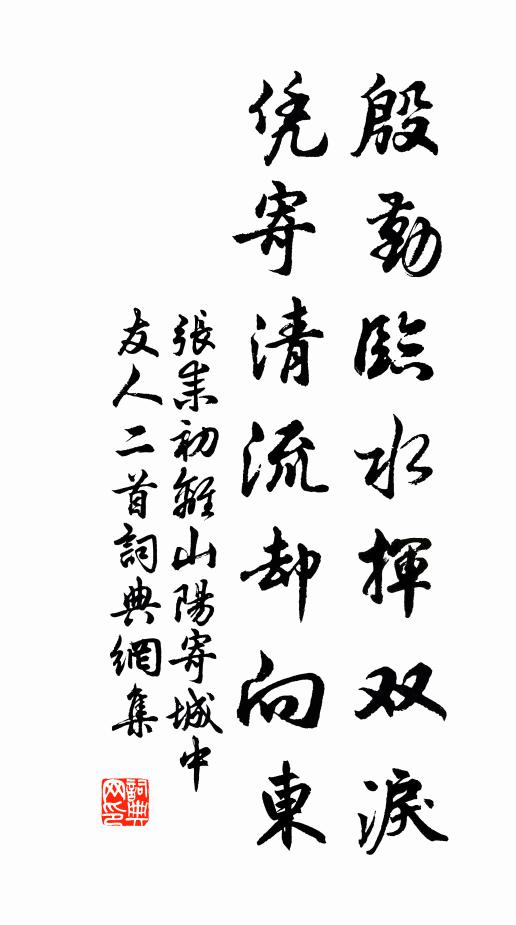 殷勤臨水揮双淚
凭寄清流却向東
張耒初離山陽寄城中
友人二首詞典網集
詞典网印